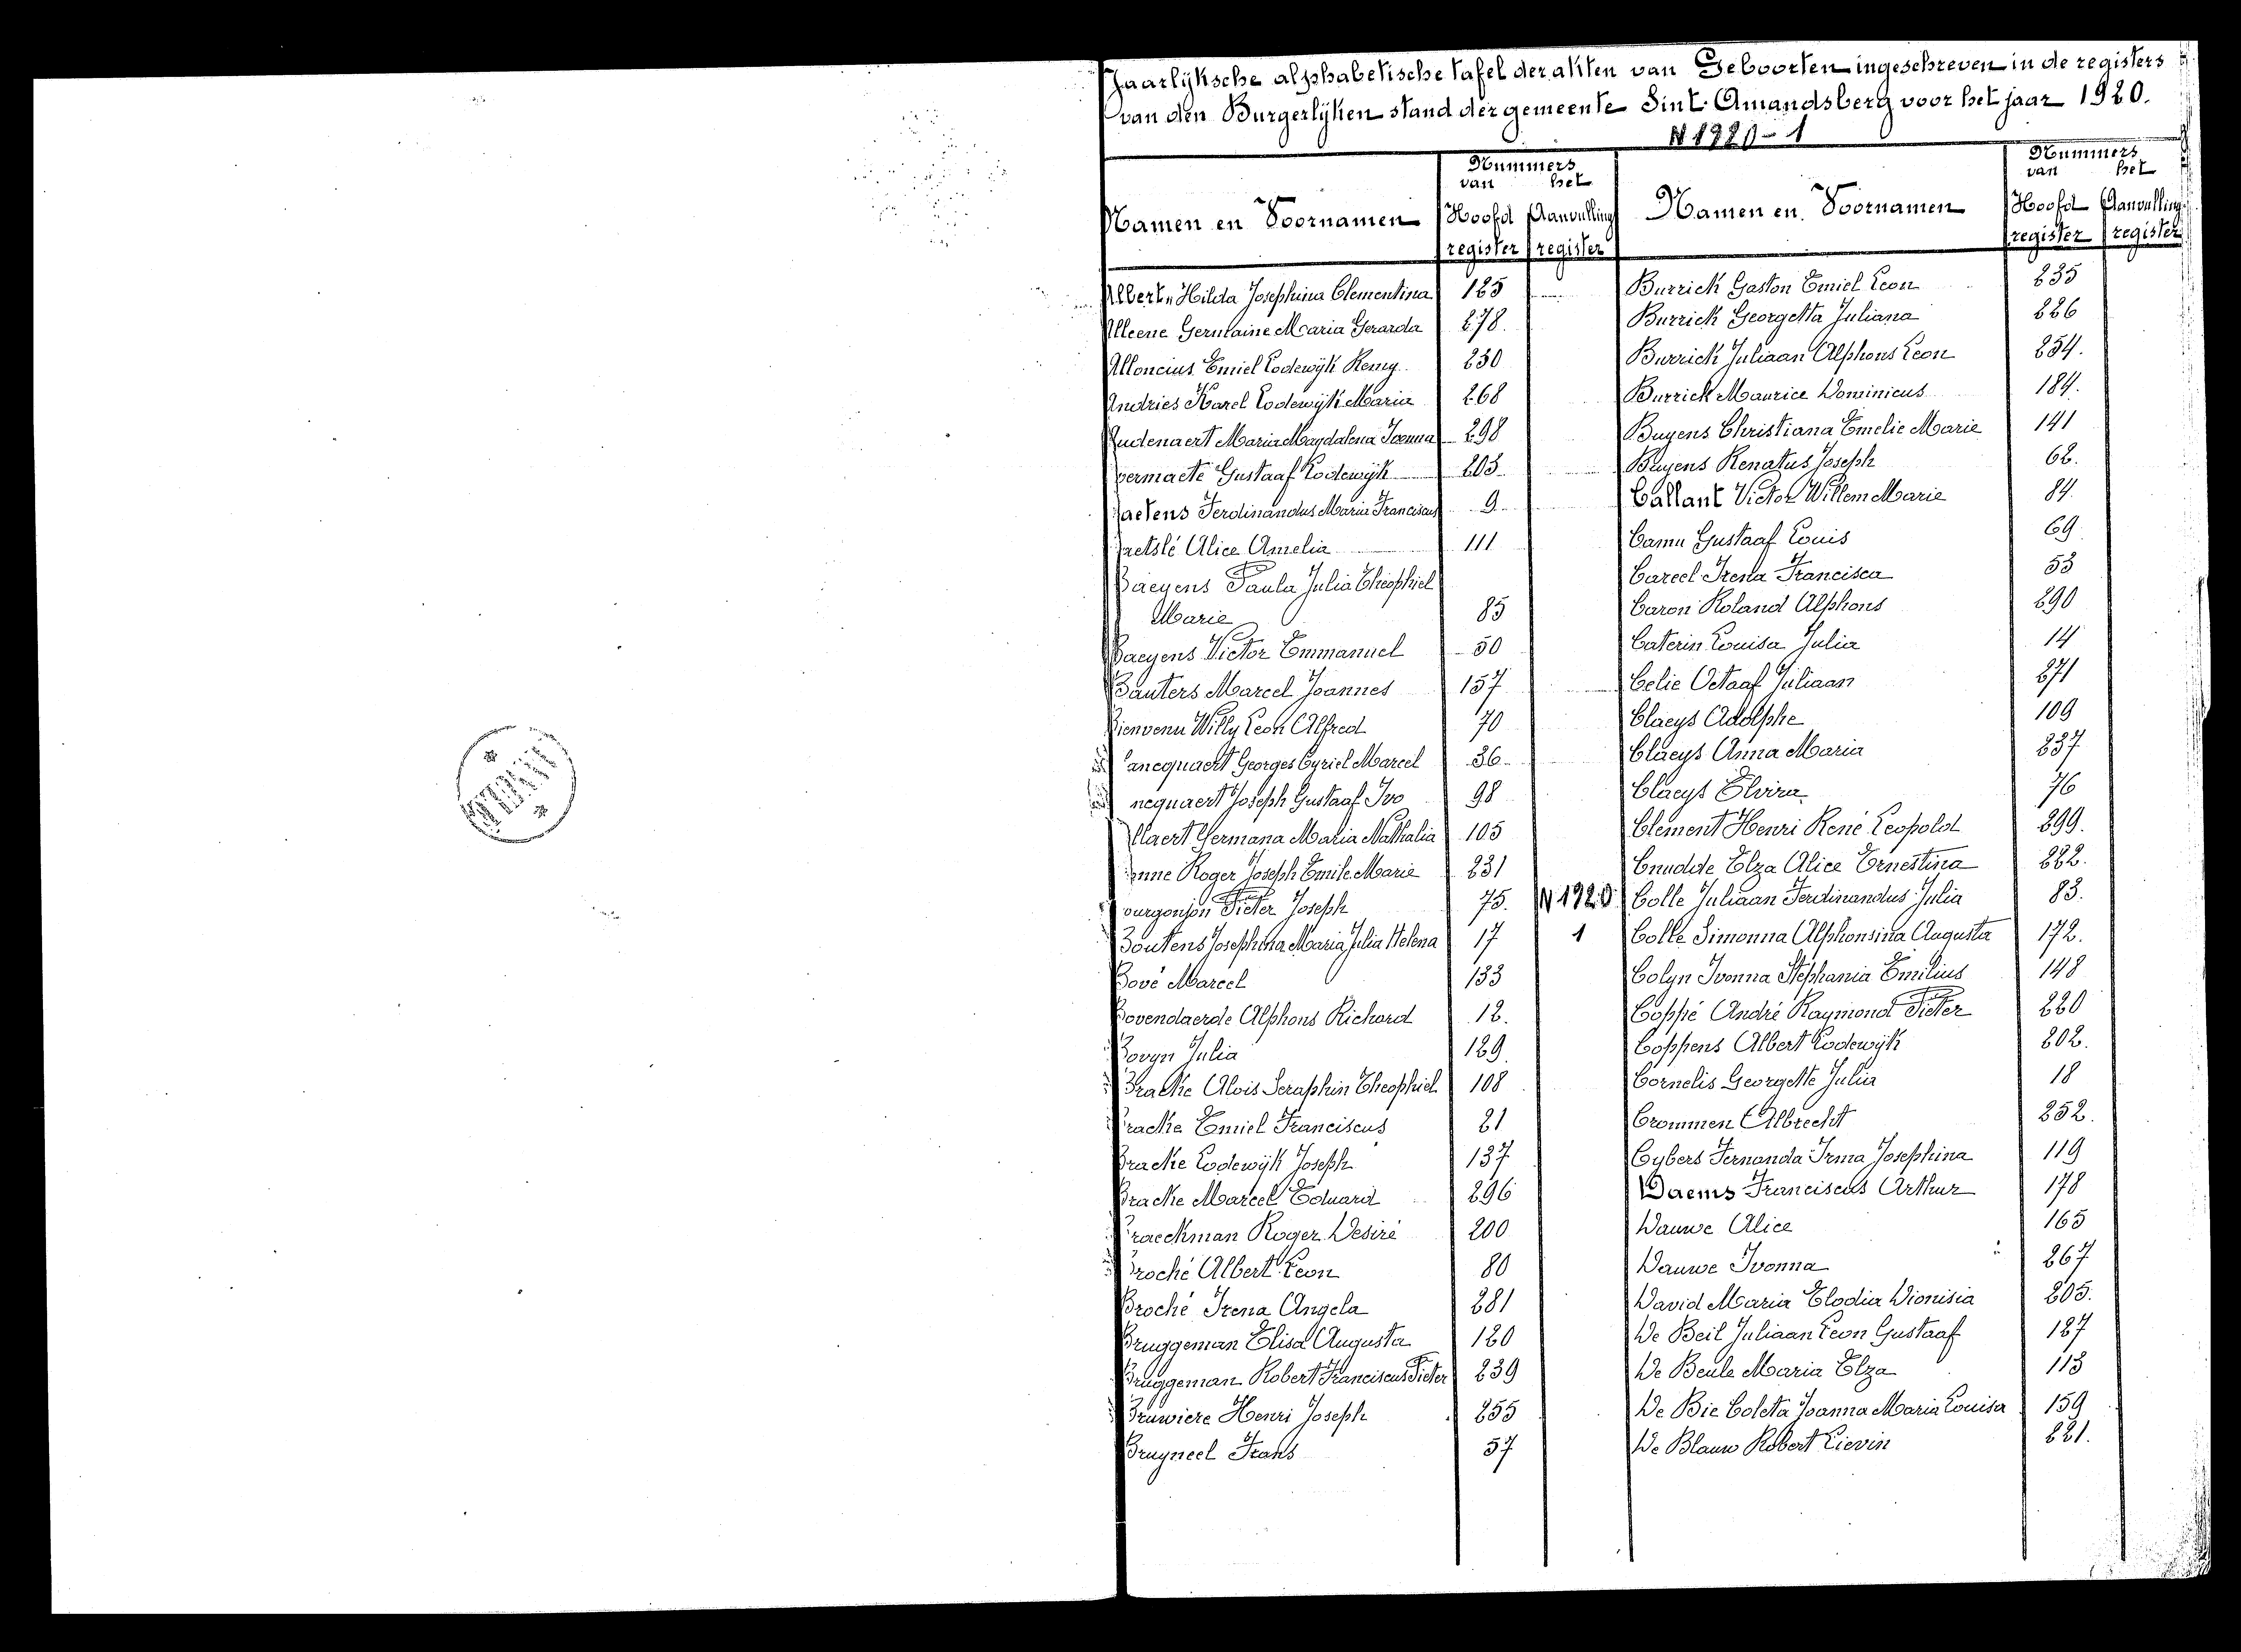 Jaarlijksche alphabetische tafel der akten van Geboorten ingeschreven in de registers
van den Burgerlijken stand der gemeente Sint Amandsberg voor het jaar 1920.
N 1920-1
Namen en Voornamen
Nummers
van het
Hoofd Aanvulling
register register
Albert Hilda Josephina Clementina 125
Alleene Germaine Maria Gerarda 278.
Alloncius Emiel Lodewijk Remy 230
Andries Karel Lodewijk Maria 268
Audenaert Maria Magdalena Joanna 298
vermaete Gustaaf Lodewijk 203
aetens Ferdinandus Maria Franciscus 9
aetslé Alice Amelia 111
Baeyens Paula Julia Theophiel
Marie 85
Baeyens Victor Emmanuel 50
Bauters Marcel Joannes 157
Bienvenu Willy Leon Alfred 70
ancquaert Georges Cyriel Marcel 36
ncquaert Joseph Gustaaf Ivo 98
llaert Germana Maria Nathalia 105
onne Roger Joseph Emile Marie 231
ourgonjon Pieter Joseph 75. N 1920
Boutens Josephina Maria Julia Helena 17 1
Bové Marcel 133
Bovendaerde Alphons Richard 12.
Bovyn Julia 129
Bracke Alois Seraphin Theophiel 108
Bracke Emiel Franciscus 21
Bracke Lodewijk Joseph 137
Bracke Marcel Eduard 296
Braeckman Roger Desiré 200
Broché Albert Leon 80
Broché Irena Angela 281
Bruggeman Elisa Augusta 120
Bruggeman Robert Franciscus Pieter 239
Bruwiere Henri Joseph 255
Bruyneel Frans 57
Namen en Voornamen
Nummers
van het
Hoofd Aanvulling
register register
Burrick Gaston Emiel Leon 235
Burrick Georgetta Juliana 226
Burrick Juliaan Alphons Leon 254.
Burrick Maurice Dominicus 184.
Buyens Christiana Emelie Marie 141
Buyens Renatus Joseph 62.
Callant Victor Willem Marie 84.
Camu Gustaaf Louis 69
Careel Irena Francisca 53
Caron Roland Alphons 290
Caterin Louisa Julia 14
Celie Octaaf Juliaan 271
Claeys Adolphe 109
Claeys Anna Maria 237
Claeys Elvira 76
Clement Henri René Leopold 299.
Cnudde Elza Alice Ernestina 222.
Colle Juliaan Ferdinandus Julia 83.
Colle Simonna Alphonsina Augusta 172.
Colyn Ivonna Stephania Emilius 148
Coppé André Raymond Pieter 220
Coppens Albert Lodewijk 202.
Cornelis Georgette Julia 18
Crommen Albrecht 252.
Cybers Fernanda Irma Josephina 119
Daems Franciscus Arthur 178
Dauwe Alice 165
Dauwe Ivonna 267
David Maria Elodia Dionisia 205.
De Beil Juliaan Leon Gustaaf 127
De Beule Maria Elza 113
De Bie Coleta Joanna Maria Louisa 159
De Blauw Robert Lievin 221.